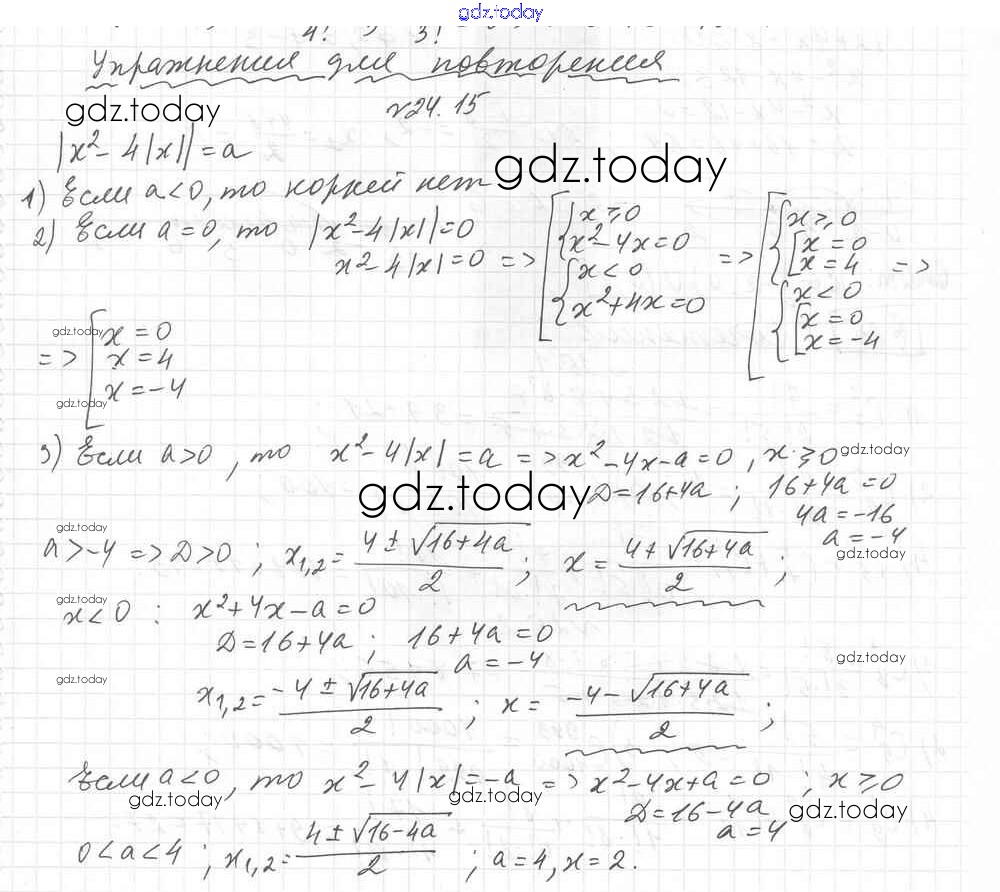 gdz.today
4! 3!
Упражнения для повторения
gdz.today №24.15
|x²-4|x||=a
gdz.today
1) Если a<0, то корней нет
2) Если a=0, то |x²-4|x||=0
x²-4|x|=0 => [{x⩾0
x²-4x=0
{x<0
x²+4x=0
=> [{x⩾0
[x=0
x=4
{x<0
[x=0
x=-4
=>
gdz.today
=> [x=0
x=4
x=-4
gdz.today
3) Если a>0, то x²-4|x|=a => x²-4x-a=0, x⩾0
gdz.today
gdz.today
D=16+4a; 16+4a=0
4a=-16
a=-4
gdz.today
gdz.today
a>-4 => D>0; x1,2=(4±√16+4a)/2; x=(4+√16+4a)/2;
gdz.today
x<0: x²+4x-a=0
D=16+4a; 16+4a=0
a=-4
gdz.today
gdz.today
x1,2=(-4±√16+4a)/2; x=(-4-√16+4a)/2;
Если a<0, то x²-4|x|=-a => x²-4x+a=0; x⩾0
gdz.today gdz.today gdz.today
D=16-4a
a=4
0<a<4; x1,2=(4±√16-4a)/2; a=4, x=2.